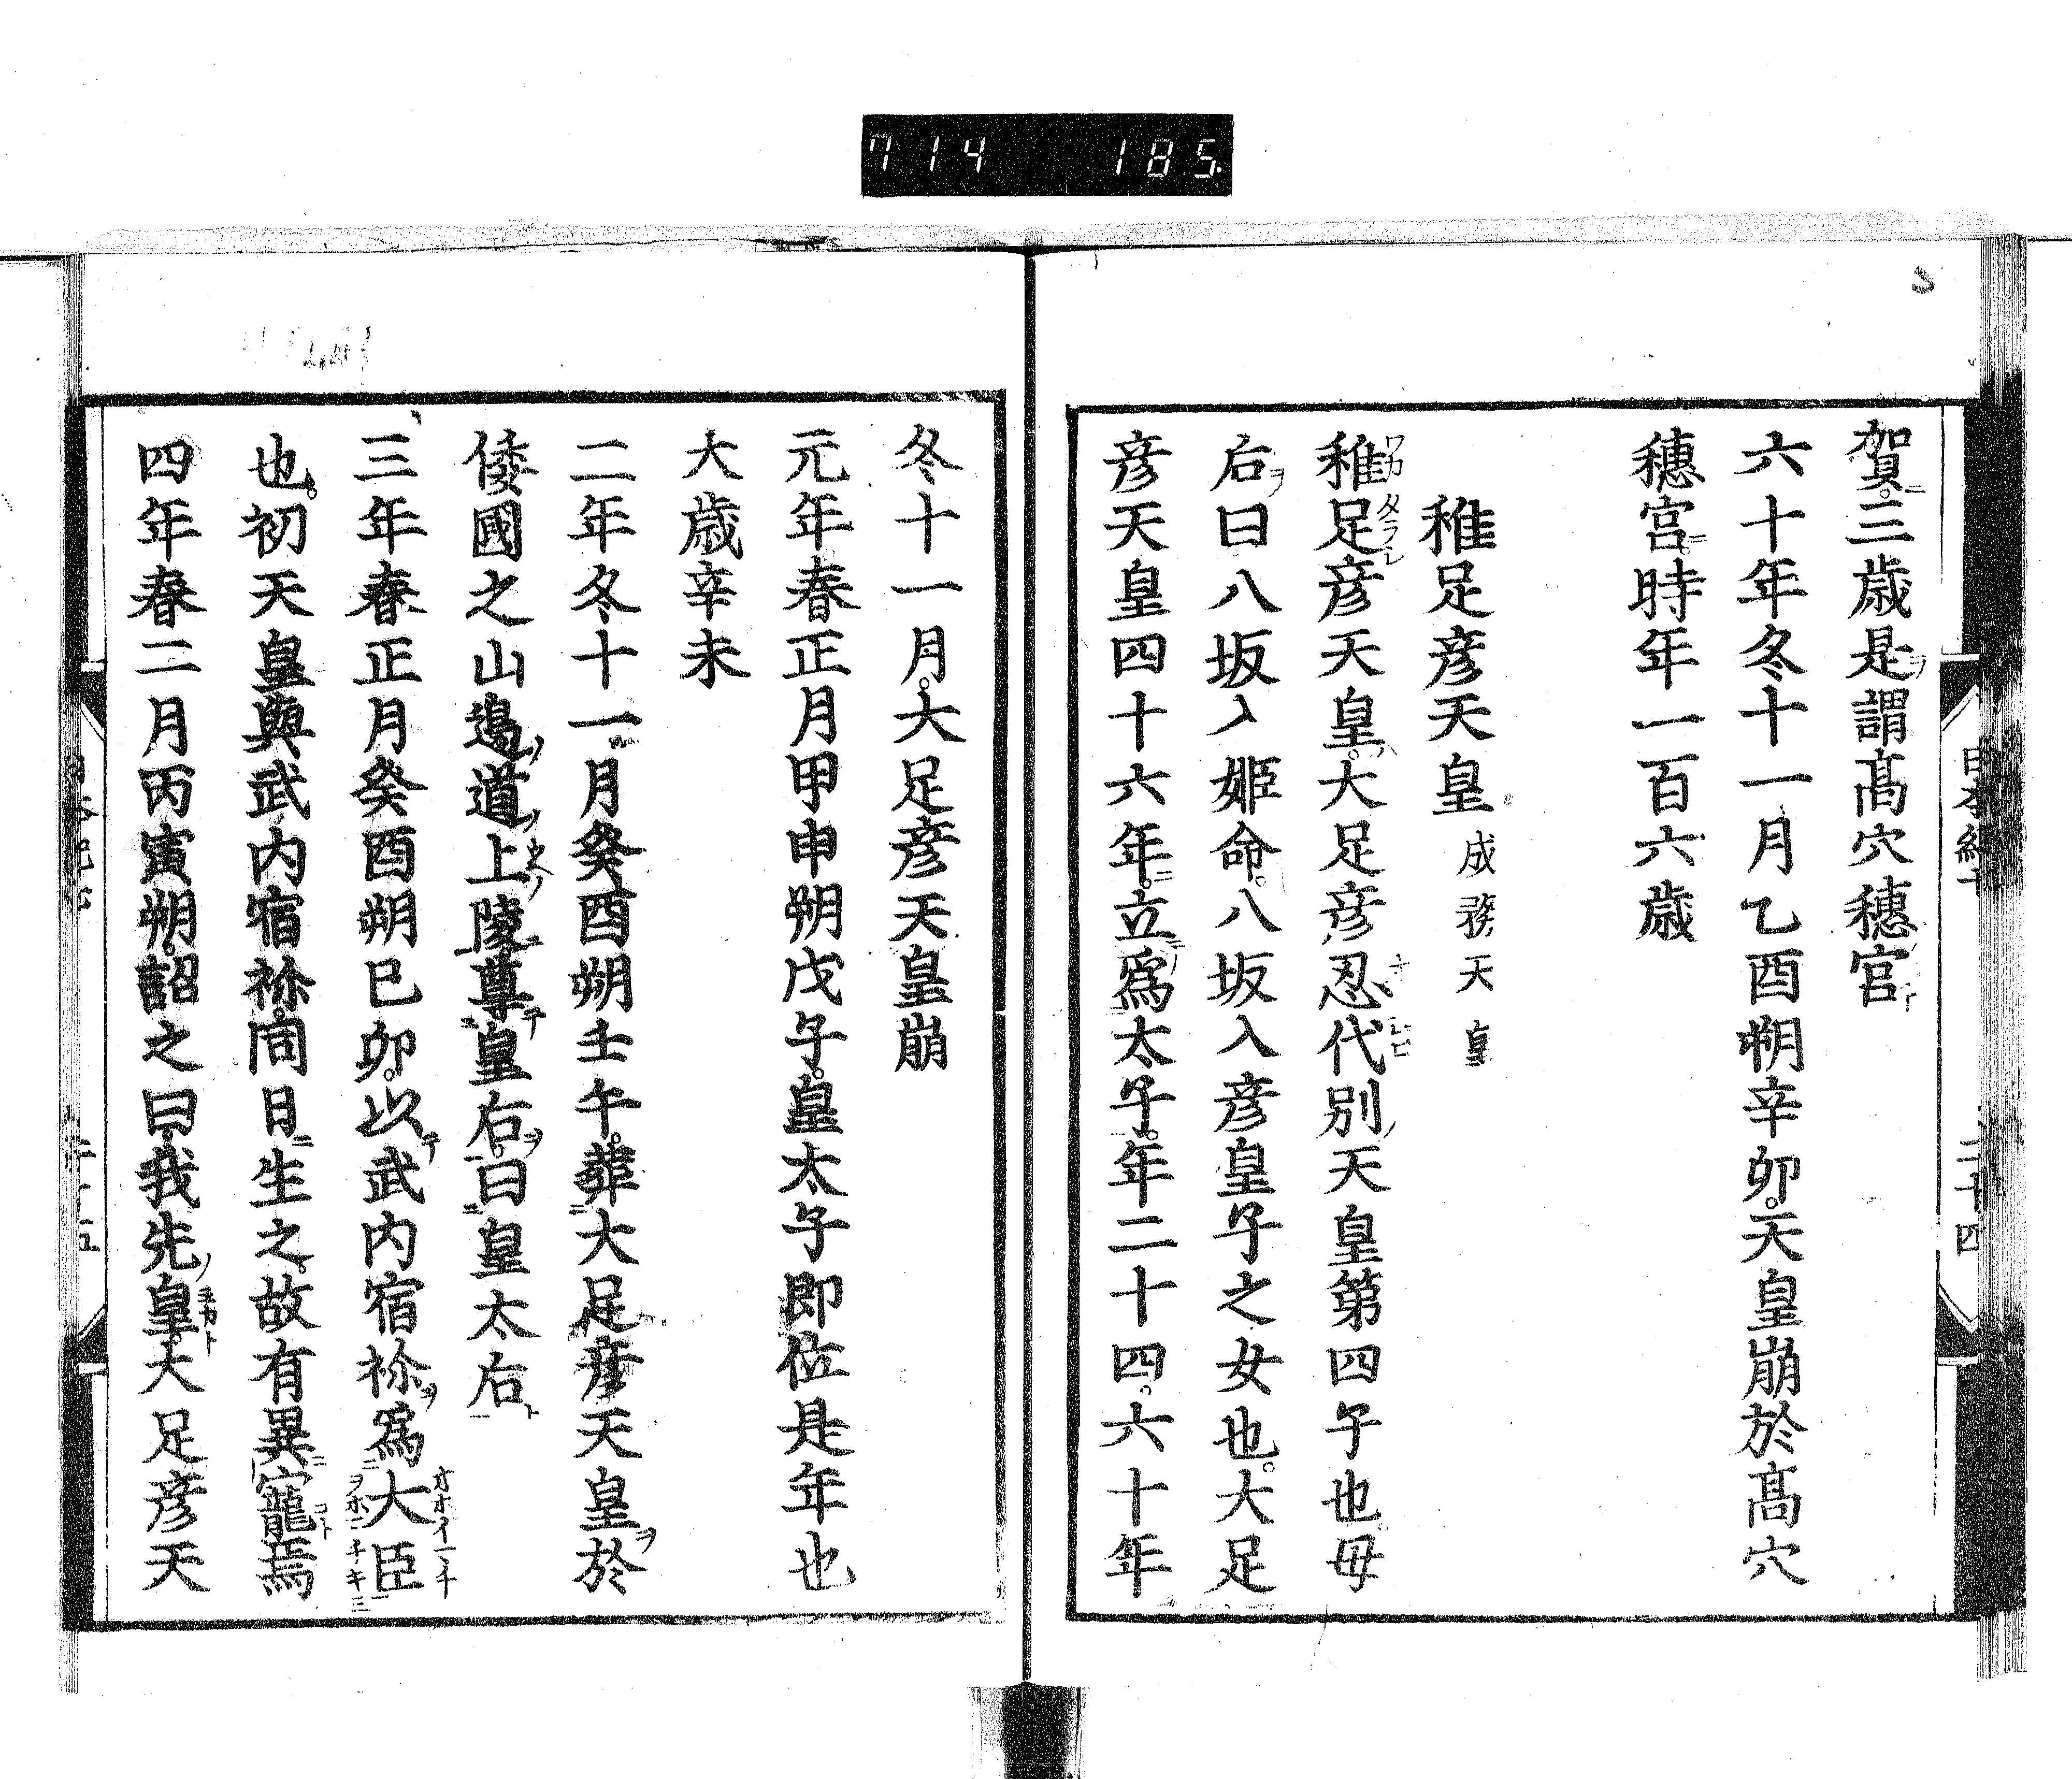 714 185
賀三歳是謂髙穴穗宮
六十年冬十一月乙酉朔辛卯天皇崩於髙穴
穗宮時年一百六歳
稚足彦天皇 成務天皇
稚足彦天皇大足彦忍代別天皇第四子也母
后曰八坂入姬命八坂入彦皇子之女也大足
彦天皇四十六年立爲太子年二十四六十年
二十四
冬十一月大足彦天皇崩
元年春正月甲申朔戊子皇太子即位是年也
大歳辛未
二年冬十一月癸酉朔壬午葬大足彦天皇於
倭國之山邊道上陵尊皇后曰皇太后
三年春正月癸酉朔己卯以武内宿祢爲大臣
也初天皇與武内宿祢同日生之故有異寵焉
四年春二月丙寅朔詔之曰我先皇大足彦天